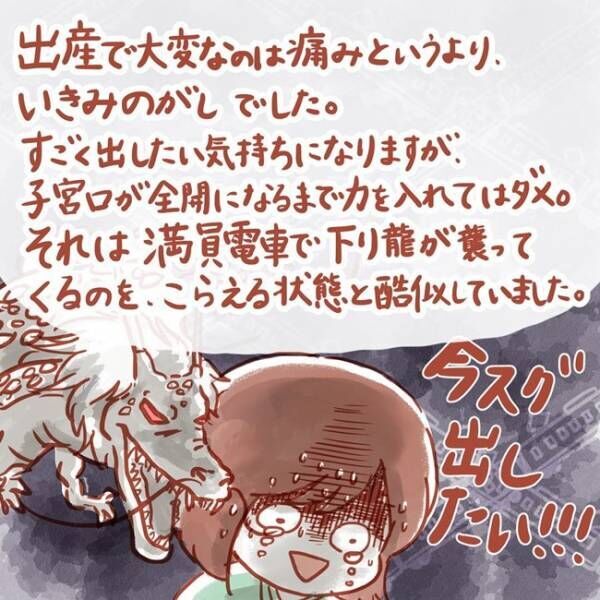 出産で大変なのは痛みというより、
いきみのがしでした。
すごく出したい気持ちになりますが、
子宮口が全開になるまで力を入れてはダメ。
それは満員電車で下り龍が襲って
くるのを、こらえる状態と酷似していました。
今スグ
出し
たい!!!